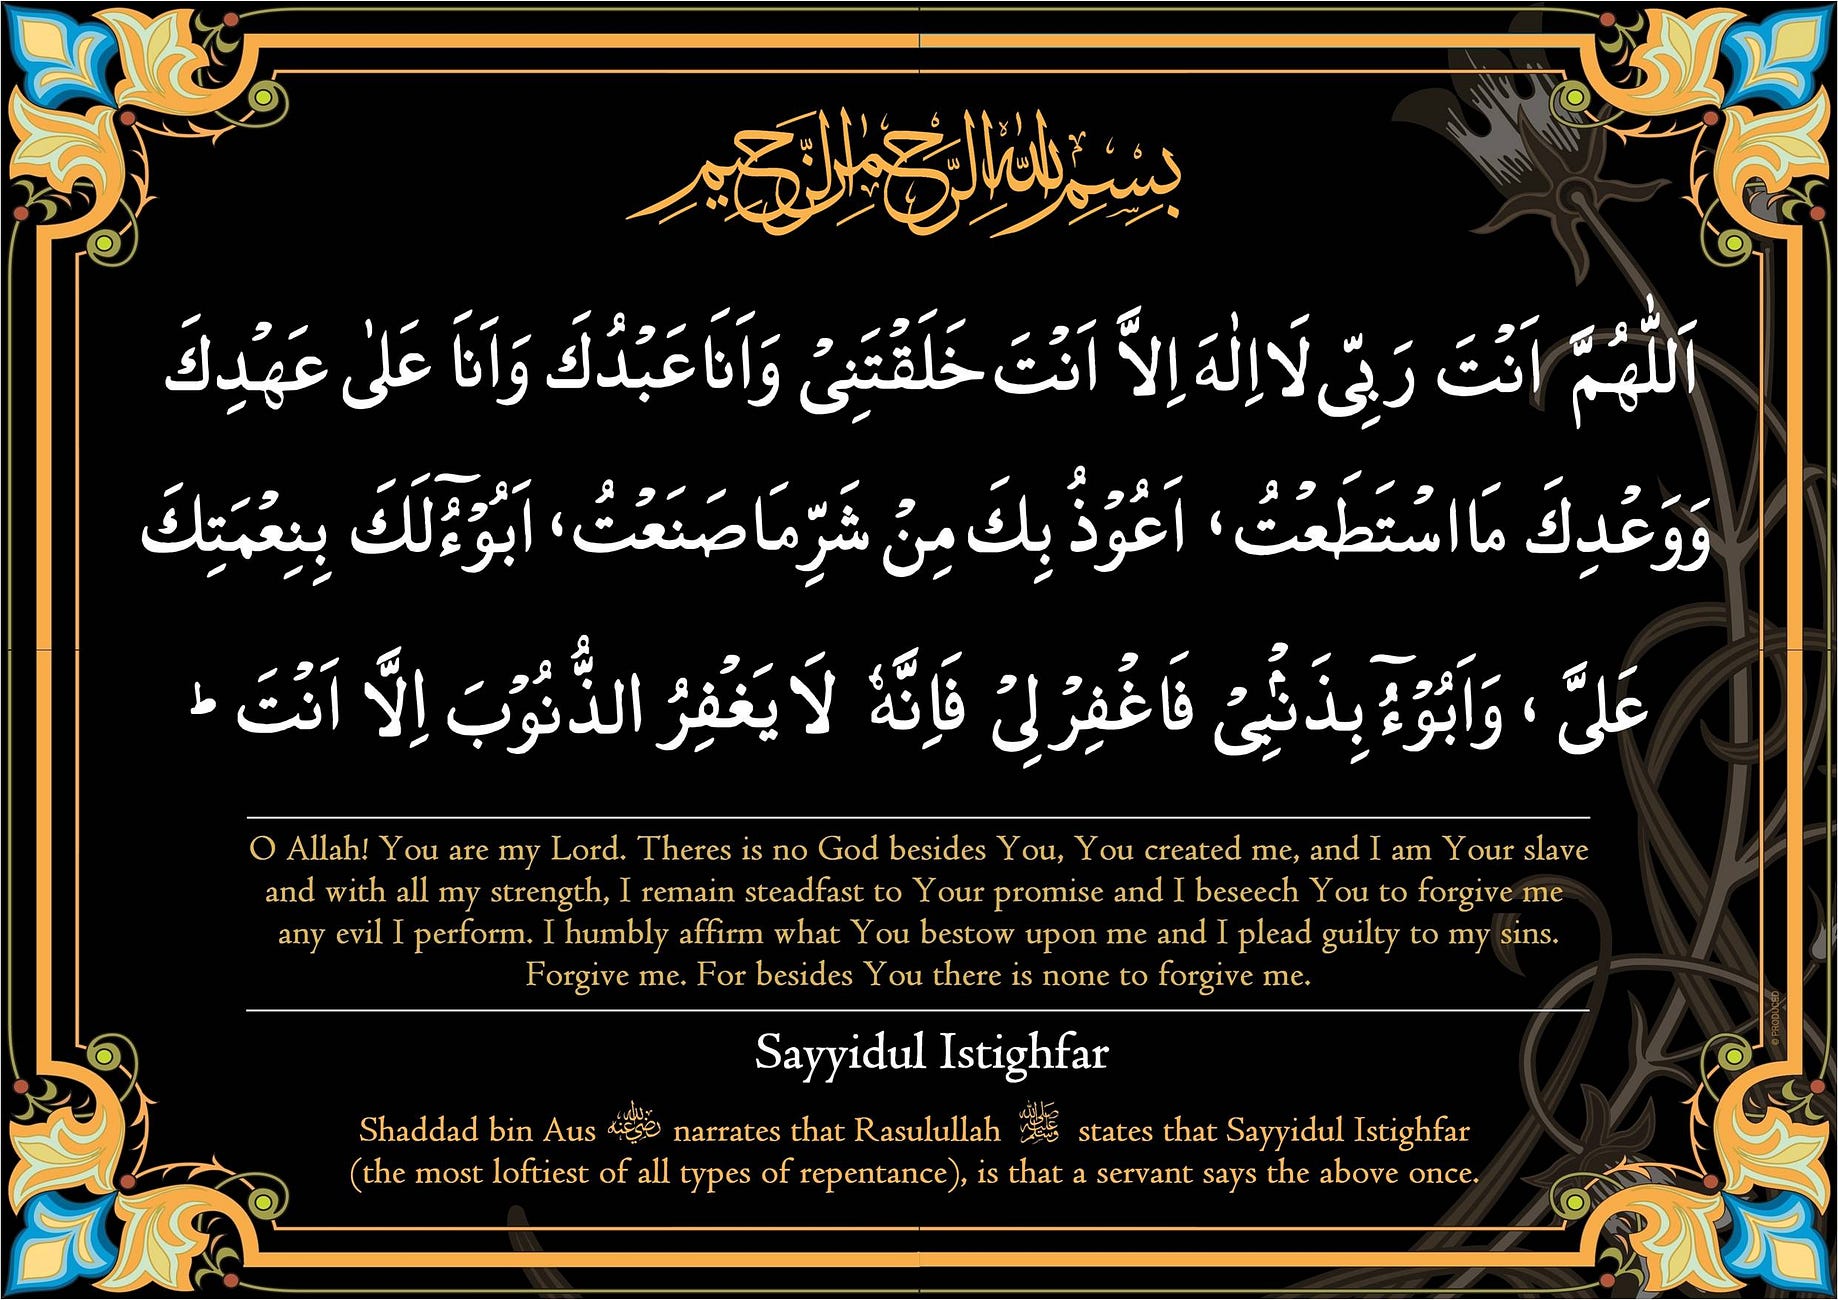 بِسْمِ اللهِ الرَّحْمٰنِ الرَّحِيْمِ
اَللّٰهُمَّ اَنْتَ رَبِّيْ لَا اِلٰهَ اِلاَّ اَنْتَ خَلَقْتَنِيْ وَاَنَا عَبْدُكَ وَاَنَا عَلٰى عَهْدِكَ
وَوَعْدِكَ مَا اسْتَطَعْتُ، اَعُوْذُ بِكَ مِنْ شَرِّ مَا صَنَعْتُ، اَبُوْٓءُ لَكَ بِنِعْمَتِكَ
عَلَيَّ، وَاَبُوْٓءُ بِذَنْۢبِيْ فَاغْفِرْ لِيْ فَاِنَّهٗ لَا يَغْفِرُ الذُّنُوْبَ اِلَّا اَنْتَ ؕ
O Allah! You are my Lord. Theres is no God besides You, You created me, and I am Your slave
and with all my strength, I remain steadfast to Your promise and I beseech You to forgive me
any evil I perform. I humbly affirm what You bestow upon me and I plead guilty to my sins.
Forgive me. For besides You there is none to forgive me.
Sayyidul Istighfar
Shaddad bin Aus رضي الله عنه narrates that Rasulullah ﷺ states that Sayyidul Istighfar
(the most loftiest of all types of repentance), is that a servant says the above once.
© PRODUCED